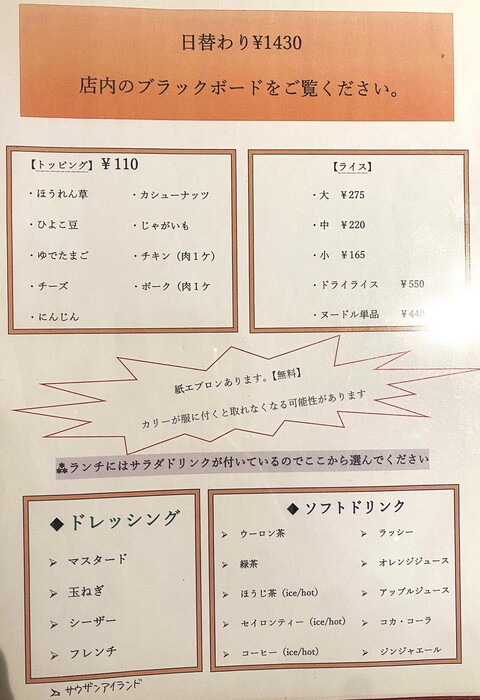 日替わり¥1430
店内のブラックボードをご覧ください。
【トッピング】¥110
・ほうれん草
・カシューナッツ
・ひよこ豆
・じゃがいも
・ゆでたまご
・チキン（肉1ケ）
・チーズ
・ポーク（肉1ケ
・にんじん
【ライス】
・大 ¥275
・中 ¥220
・小 ¥165
・ドライライス ¥550
・ヌードル単品 ¥440
紙エプロンあります。【無料】
カリーが服に付くと取れなくなる可能性があります
⁂ランチにはサラダドリンクが付いているのでここから選んでください
◆ドレッシング
➢ マスタード
➢ 玉ねぎ
➢ シーザー
➢ フレンチ
➢ サウザンアイランド
◆ソフトドリンク
➢ ウーロン茶
➢ ラッシー
➢ 緑茶
➢ オレンジジュース
➢ ほうじ茶（ice/hot）
➢ アップルジュース
➢ セイロンティー（ice/hot）
➢ コカ・コーラ
➢ コーヒー（ice/hot）
➢ ジンジャエール